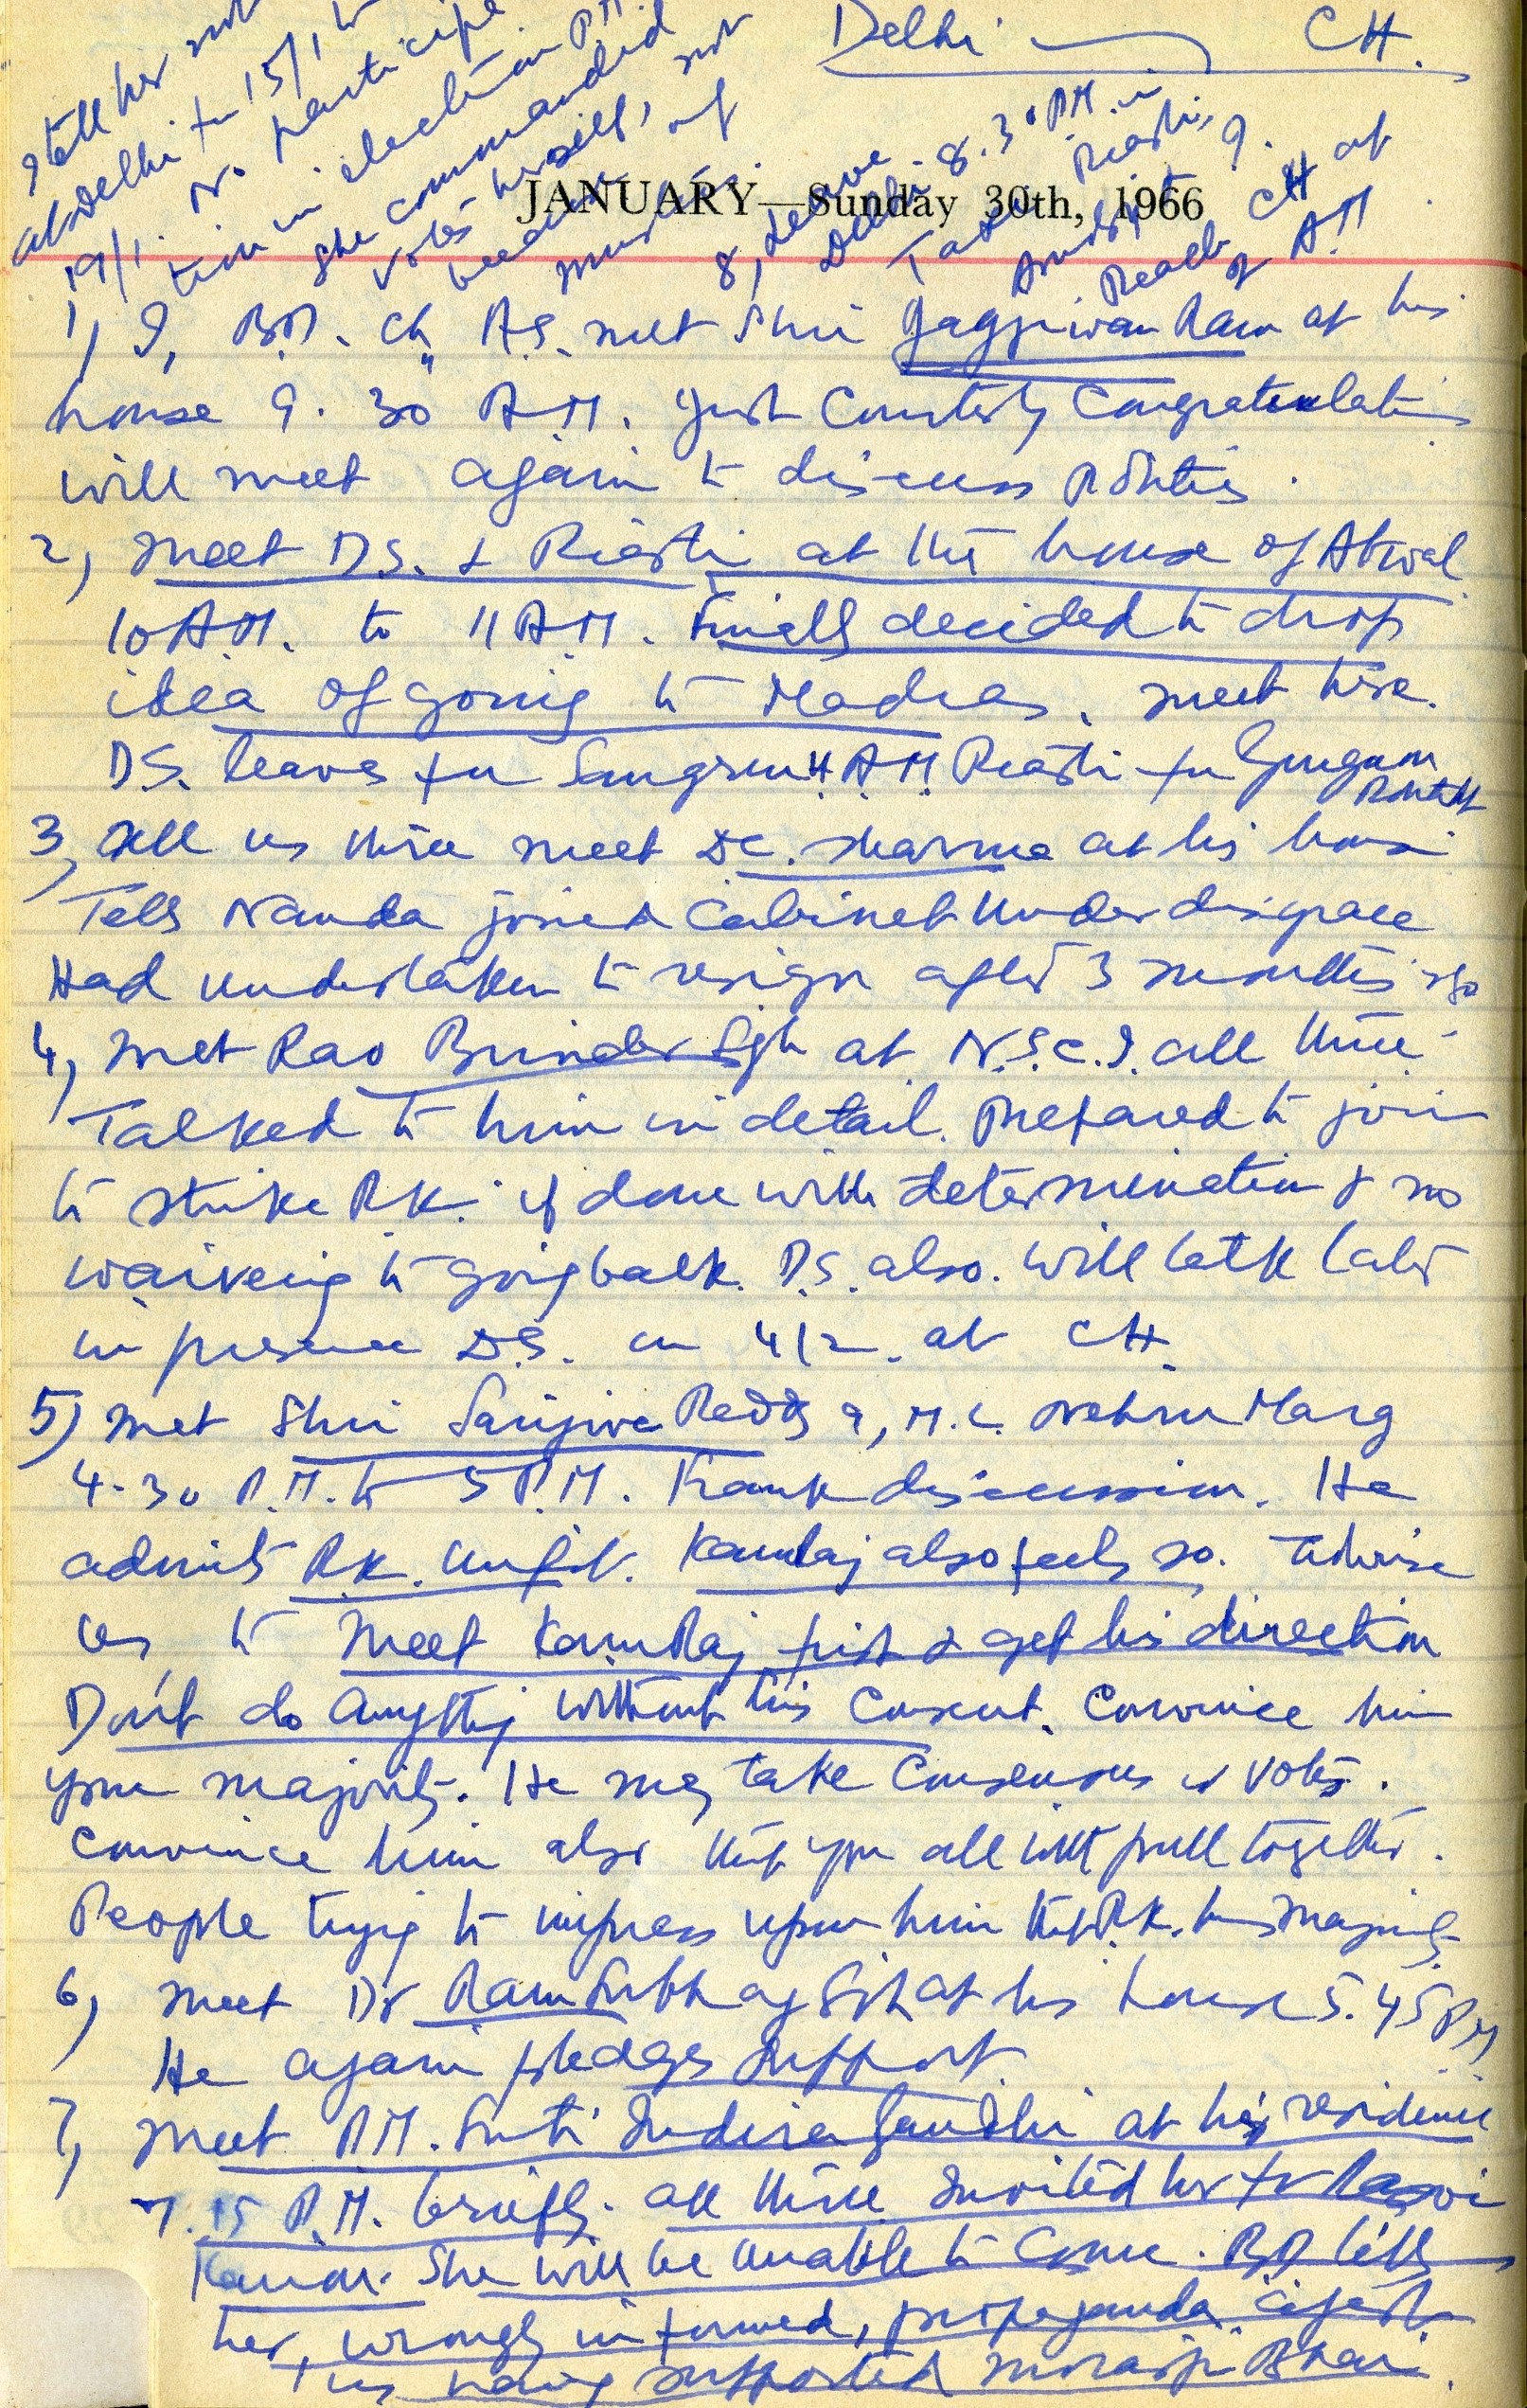 Delhi — CH.
I tell her not
at Delhi fr 15/1 to
19/1. No participa
tion in election P.M.
She commanded
votes herself, not
because of
8, Leave
Delhi 8.30 P.M. in
Taxi, Riasti,
9.
Reach CH at
2 A.M.
JANUARY—Sunday 30th, 1966
1, I, B.D. Ch. A.S. met Shri Jagjiwan Ram at his
house 9.30 A.M. Just Courtesy Congratulation
will meet again to discuss politics.
2, Meet D.S. & Riasti at the house of Atwal
10 A.M. to 11 A.M. Finally decided to drop
idea of going to Madras. meet here.
D.S. leaves for Sangrur 11 A.M Riasti for Gurgaon
Rohtak
3, All us three meet D.C. Sharma at his house
Tells Nanda joined Cabinet under disgrace
Had undertaken to resign after 3 months
4, Met Rao Brinder Sgh at N.S.C.I. all three
Talked to him in detail. Prepared to join
to strike R.K. if done with determination & no
waivering to going back. D.S. also. Will talk later
in presence D.S. on 4/2. at CH.
5) Met Shri Sanjiva Reddy 9, M.L. Nehru Marg
4-30 P.M. to 5 P.M. Frank discussion. He
admits R.K. unfit. Kamraj also feels so. Advise
us to meet KamRaj first & get his direction
Don't do anything without his Consent. Convince him
your majority. He may take Consensus or votes.
Convince him also that you all will pull together.
People trying to impress upon him that R.K. has majority
6, Meet Dr Ram Subhag Sgh at his house 5.45 P.M
He again pledges support.
7, Meet P.M. Smti Indira Gandhi at her residence
7.15 P.M. briefly. all three Invited her for
She will be unable to Come. B.D tells
her, wrongly informed, propaganda against
us having supported Morarji Bhai.